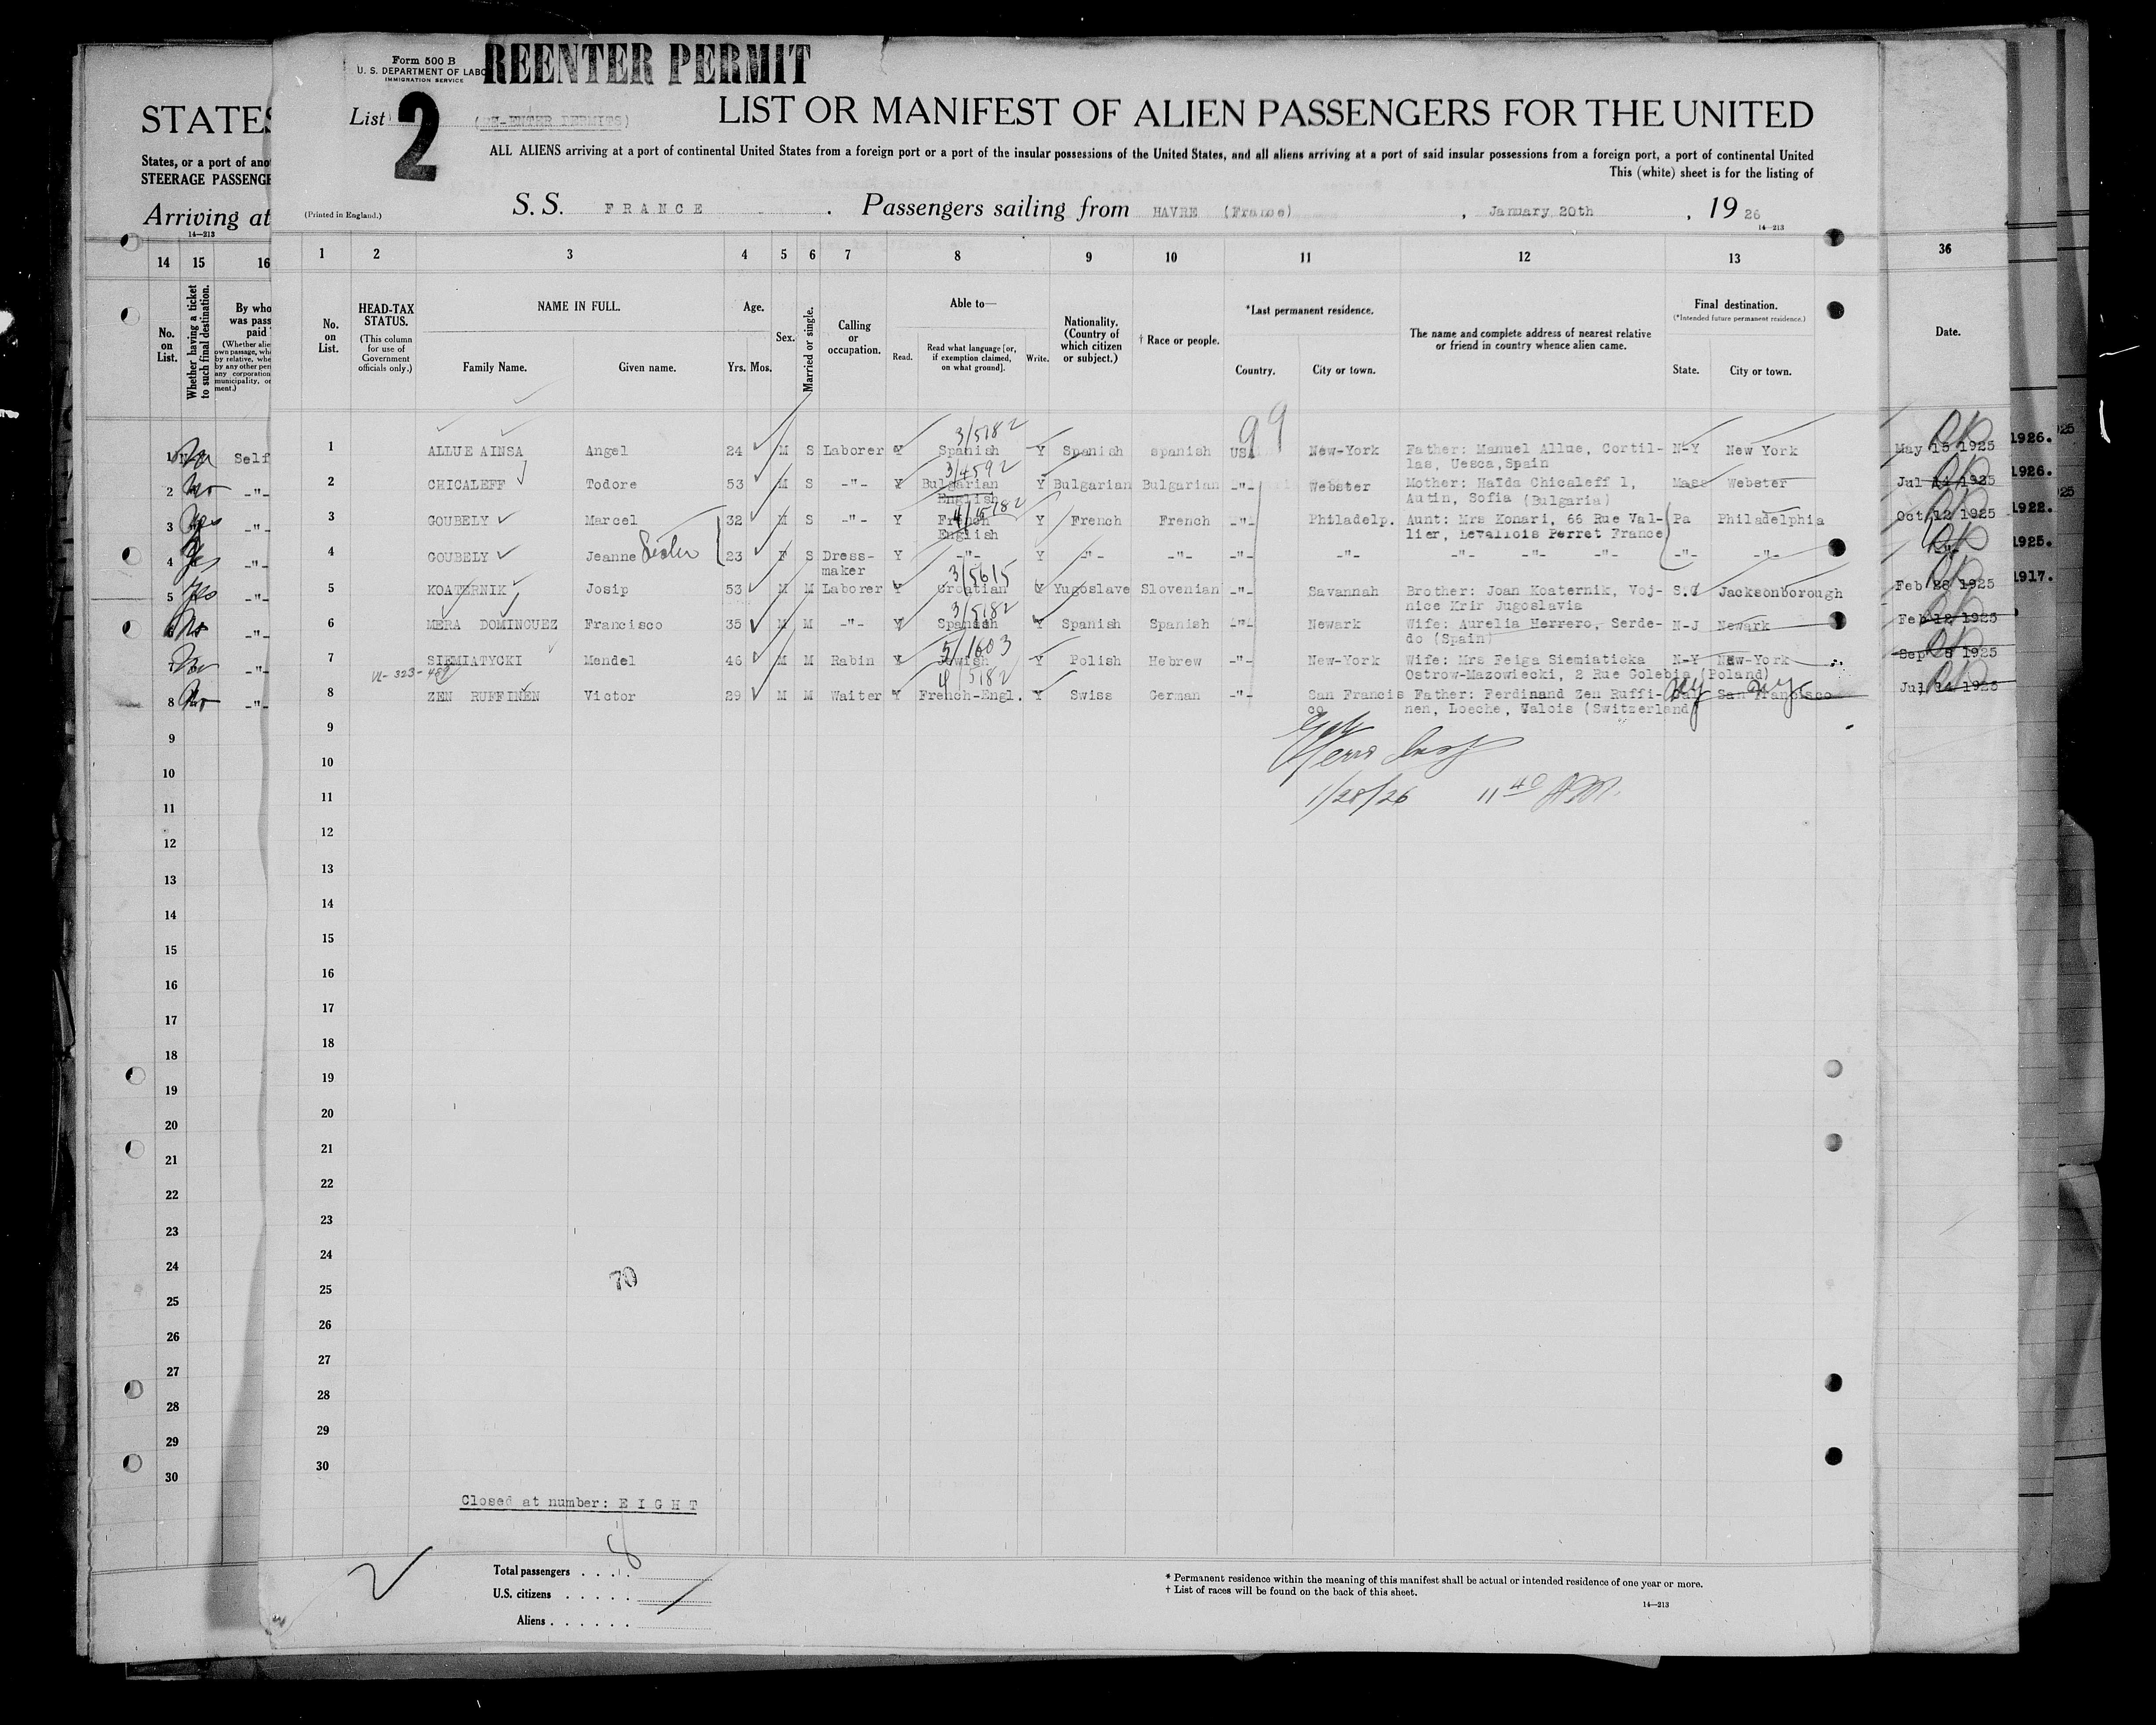 Form 500 B
U. S. DEPARTMENT OF LABO
IMMIGRATION SERVICE
REENTER PERMIT
List 2 (RE-ENTER PERMITS)
LIST OR MANIFEST OF ALIEN PASSENGERS FOR THE UNITED
ALL ALIENS arriving at a port of continental United States from a foreign port or a port of the insular possessions of the United States, and all aliens arriving at a port of said insular possessions from a foreign port, a port of continental United
This (white) sheet is for the listing of
(Printed in England.)
S. S. FRANCE. Passengers sailing from HAVRE (France), January 20th, 1926
14—213
STATES
States, or a port of ano
STEERAGE PASSENGE
Arriving at
14—213
14 15 16
No. on List.
Whether having a ticket to such final destination.
By who
was pass
paid
(Whether alie
own passage, whe
by relative, whe
by any other per
any corporation
municipality, o
ment.)
1 2 3 4 5 6 7 8 9 10 11 12 13
No. on List.
HEAD-TAX STATUS.
(This column for use of Government officials only.)
NAME IN FULL.
Family Name. Given name.
Age.
Yrs. Mos.
Sex.
Married or single.
Calling or occupation.
Able to—
Read. Read what language [or, if exemption claimed, on what ground]. Write.
Nationality. (Country of which citizen or subject.)
† Race or people.
*Last permanent residence.
Country. City or town.
The name and complete address of nearest relative or friend in country whence alien came.
Final destination.
(*Intended future permanent residence.)
State. City or town.
36
Date.
99
3/5182
1 ALLUE AINSA Angel 24 M S Laborer Y Spanish Y Spanish spanish USA New-York Father: Manuel Allue, Cortil- N-Y New York May 15 1925
las, Uesca, Spain
3/4592
2 CHICALEFF Todore 53 M S -"- Y Bulgarian Y Bulgarian Bulgarian -"- Webster Mother: Haïda Chicaleff 1, Mass Webster Jul 14 1925
English Autin, Sofia (Bulgaria)
4/5182
3 GOUBELY Marcel 32 M S -"- Y French Y French French -"- Philadelp. Aunt: Mrs Konari, 66 Rue Val- Pa Philadelphia Oct 12 1925
English lier, Levallois Perret France
4 GOUBELY Jeanne Sister 23 F S Dress- Y -"- Y -"- -"- -"- -"- -"- -"- -"- -"- -"- -"-
maker
3/5615
5 KOATERNIK Josip 53 M M Laborer Y Croatian Y Yugoslave Slovenian -"- Savannah Brother: Joan Koaternik, Voj- S.C Jacksonborough Feb 28 1925
nice Krir Jugoslavia
3/5182
6 MERA DOMINGUEZ Francisco 35 M M -"- Y Spanish Y Spanish Spanish -"- Newark Wife: Aurelia Herrero, Serde- N-J Newark Feb 12 1925
do (Spain)
5/1603
7 SIEMIATYCKI Mendel 46 M M Rabin Y Jewish Y Polish Hebrew -"- New-York Wife: Mrs Feiga Siemiaticka N-Y New-York Sep 5 1925
Ostrow-Mazowiecki, 2 Rue Golebia (Poland)
4/5182
8 ZEN RUFFINEN Victor 29 M M Waiter Y French-Engl. Y Swiss German -"- San Francis Father: Ferdinand Zen Ruffi- NY San Francisco NYC Jul 14 1925
co nen, Loeche, Walois (Switzerland)
1 No Self
2 No -"-
3 Yes -"-
4 Yes -"-
5 Yes -"-
6 No -"-
7 No -"-
8 No -"-
1926.
1926.
1922.
1925.
1917.
1/28/26 11 40 AM.
9
10
11
12
13
14
15
16
17
18
19
20
21
22
23
24
25
26
27
28
29
30
70
Closed at number: EIGHT
2
Total passengers . . . . 8
U.S. citizens . . . . .
Aliens . . . . . .
* Permanent residence within the meaning of this manifest shall be actual or intended residence of one year or more.
† List of races will be found on the back of this sheet.
14—213